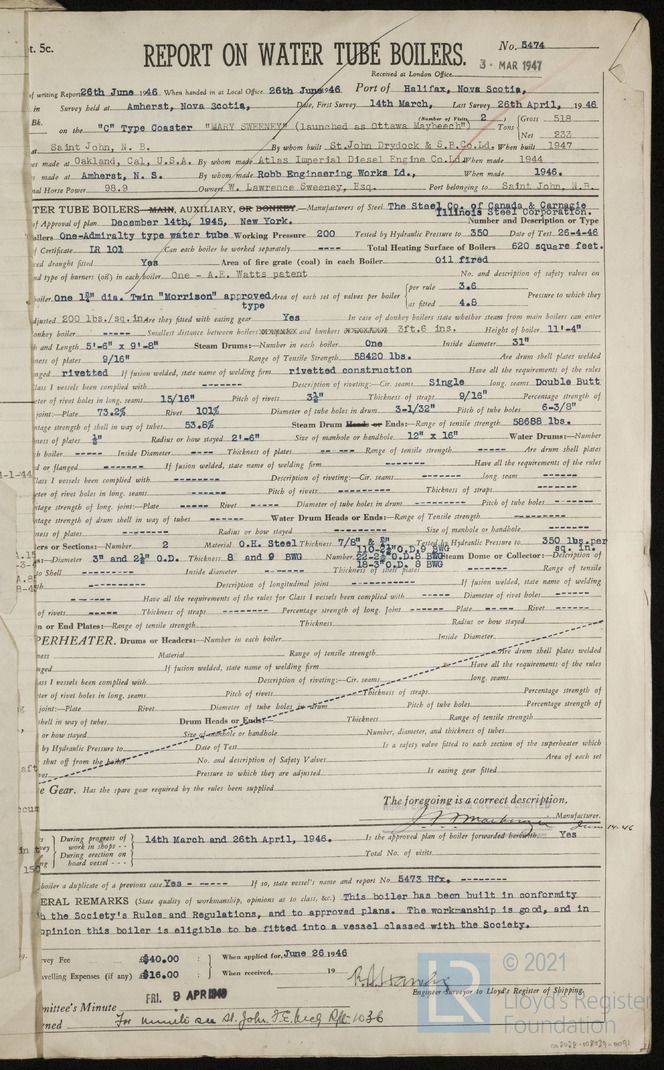 t. 5c.
REPORT ON WATER TUBE BOILERS.
No. 5474
3 - MAR 1947
Received at London Office
of writing Report 26th June 1946. When handed in at Local Office 26th June 1946 Port of Halifax, Nova Scotia,
in Survey held at Amherst, Nova Scotia, Date, First Survey 14th March, Last Survey 26th April, 1946
Bk. (Number of Visits 2 ) Gross 518
on the "C" Type Coaster "MARY SWEENEY" (launched as Ottawa Maybeech") Tons Net 233
at Saint John, N. B. By whom built St.John Drydock & S.R.Co.Ld. When built 1947
es made at Oakland, Cal, U.S.A. By whom made Atlas Imperial Diesel Engine Co.Ld. When made 1944
s made at Amherst, N. S. By whom made Robb Engineering Works Ld., When made 1946.
nal Horse Power 98.9 Owners W. Lawrence Sweeney, Esq. Port belonging to Saint John, N.B.
TER TUBE BOILERS MAIN, AUXILIARY, OR DONKEY.—Manufacturers of Steel The Steel Co. of Canada & Carnegie
Illinois Steel Corporation.
of Approval of plan December 14th, 1945, New York. Number and Description or Type
oilers One-Admiralty type water tube Working Pressure 200 Tested by Hydraulic Pressure to 350 Date of Test 26-4-46
Certificate LR 101 Can each boiler be worked separately ---- Total Heating Surface of Boilers 620 square feet.
ed draught fitted Yes Area of fire grate (coal) in each Boiler Oil fired
nd type of burners (oil) in each boiler One - A.E. Watts patent No. and description of safety valves on
boiler One 1½" dia. Twin "Morrison" approved type Area of each set of valves per boiler { per rule 3.6 Pressure to which they
as fitted 4.8
djusted 200 lbs./sq.in. Are they fitted with easing gear Yes In case of donkey boilers state whether steam from main boilers can enter
onkey boiler ----- Smallest distance between boilers and bunkers 3ft.6 ins. Height of boiler 11'-4"
h and Length 5'-6" x 9'-8" Steam Drums:—Number in each boiler One Inside diameter 31"
ness of plates 9/16" Range of Tensile Strength 58420 lbs. Are drum shell plates welded
nged rivetted If fusion welded, state name of welding firm rivetted construction Have all the requirements of the rules
lass I vessels been complied with ------- Description of riveting:—Cir. seams Single long. seams Double Butt
eter of rivet holes in long. seams 15/16" Pitch of rivets 3½" Thickness of straps 9/16" Percentage strength of
joint:—Plate 73.2% Rivet 101% Diameter of tube holes in drum 3-1/32" Pitch of tube holes 6-3/8"
ntage strength of shell in way of tubes 53.8% Steam Drum Heads or Ends:—Range of tensile strength 58688 lbs.
ness of plates ½" Radius or how stayed 2'-6" Size of manhole or handhole 12" x 16" Water Drums:—Number
ch boiler ----- Inside Diameter ----- Thickness of plates ----- Range of tensile strength ----- Are drum shell plates
d or flanged ------- If fusion welded, state name of welding firm ------- Have all the requirements of the rules
lass I vessels been complied with ------- Description of riveting:—Cir. seams ------- long. seam -----
eter of rivet holes in long. seams ------- Pitch of rivets ------- Thickness of straps -------
ntage strength of long. joint:—Plate ----- Rivet ----- Diameter of tube holes in drum ------- Pitch of tube holes -----
ntage strength of drum shell in way of tubes ------- Water Drum Heads or Ends:—Range of Tensile Strength -------
ness of plates ------- Radius or how stayed ------- Size of manhole or handhole -------
ers or Sections:—Number 2 Material O.H. Steel Thickness 7/8" & ½" Tested by Hydraulic Pressure to 350 lbs.per sq. in.
es:—Diameter 3" and 2½" O.D. Thickness 8 and 9 BWG Number 110-2½"O.D.9 BWG Steam Dome or Collector:—Description of
22-2½"O.D.8 BWG
18-3"O.D. 8 BWG
to Shell ------- Inside diameter ------- Thickness of shell plates ------- Range of tensile
------- Description of longitudinal joint ------- If fusion welded, state name of welding
------- Have all the requirements of the rules for Class I vessels been complied with ----- Diameter of rivet holes -----
of rivets ----- Thickness of straps ------- Percentage strength of long. Joints ------- Plate ----- Rivet -----
n or End Plates:—Range of tensile strength Thickness Radius or how stayed
PERHEATER. Drums or Headers:—Number in each boiler Inside Diameter
ness Material Range of tensile strength Are drum shell plates welded
nged If fusion welded, state name of welding firm Have all the requirements of the rules
ass I vessels been complied with Description of riveting:—Cir. seams long. seams
ter of rivet holes in long. seams Pitch of rivets Thickness of straps Percentage strength of
joint:—Plate Rivet Diameter of tube holes in drum Pitch of tube holes Percentage strength of
hell in way of tubes Drum Heads or Ends:— Thickness Range of tensile strength
or how stayed Size of manhole or handhole Number, diameter, and thickness of tubes
by Hydraulic Pressure to Date of Test Is a safety valve fitted to each section of the superheater which
shut off from the boiler No. and description of Safety Valves Area of each set
ves Pressure to which they are adjusted Is easing gear fitted
e Gear. Has the spare gear required by the rules been supplied
The foregoing is a correct description,
Manufacturer.
June 14-46
During progress of work in shops - - 14th March and 26th April, 1946. Is the approved plan of boiler forwarded herewith Yes
During erection on board vessel - - - Total No. of visits
boiler a duplicate of a previous case Yes - ----- If so, state vessel's name and report No. 5473 Hfx. --------
ERAL REMARKS (State quality of workmanship, opinions as to class, &c.) This boiler has been built in conformity
h the Society's Rules and Regulations, and to approved plans. The workmanship is good, and in
opinion this boiler is eligible to be fitted into a vessel classed with the Society.
rvey Fee $40.00 : When applied for, June 26 1946
velling Expenses (if any) $16.00 : When received, 19
Engineer Surveyor to Lloyd's Register of Shipping.
mmittee's Minute FRI. 9 APR 1948
ned For minute see St. John F.E. mchy Rpt. 1036
© 2021
LR
Lloyd's Register
Foundation